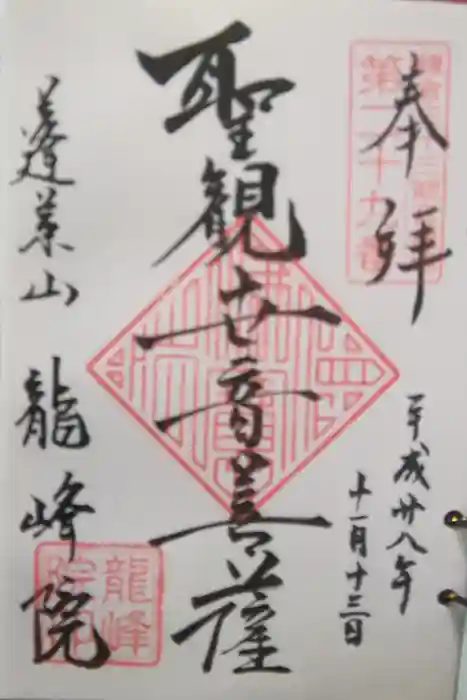 奉拝
平成廿八年
十一月十三日
聖観世音菩薩
蓬莱山 龍峰院
第二十九番
龍峰
院印